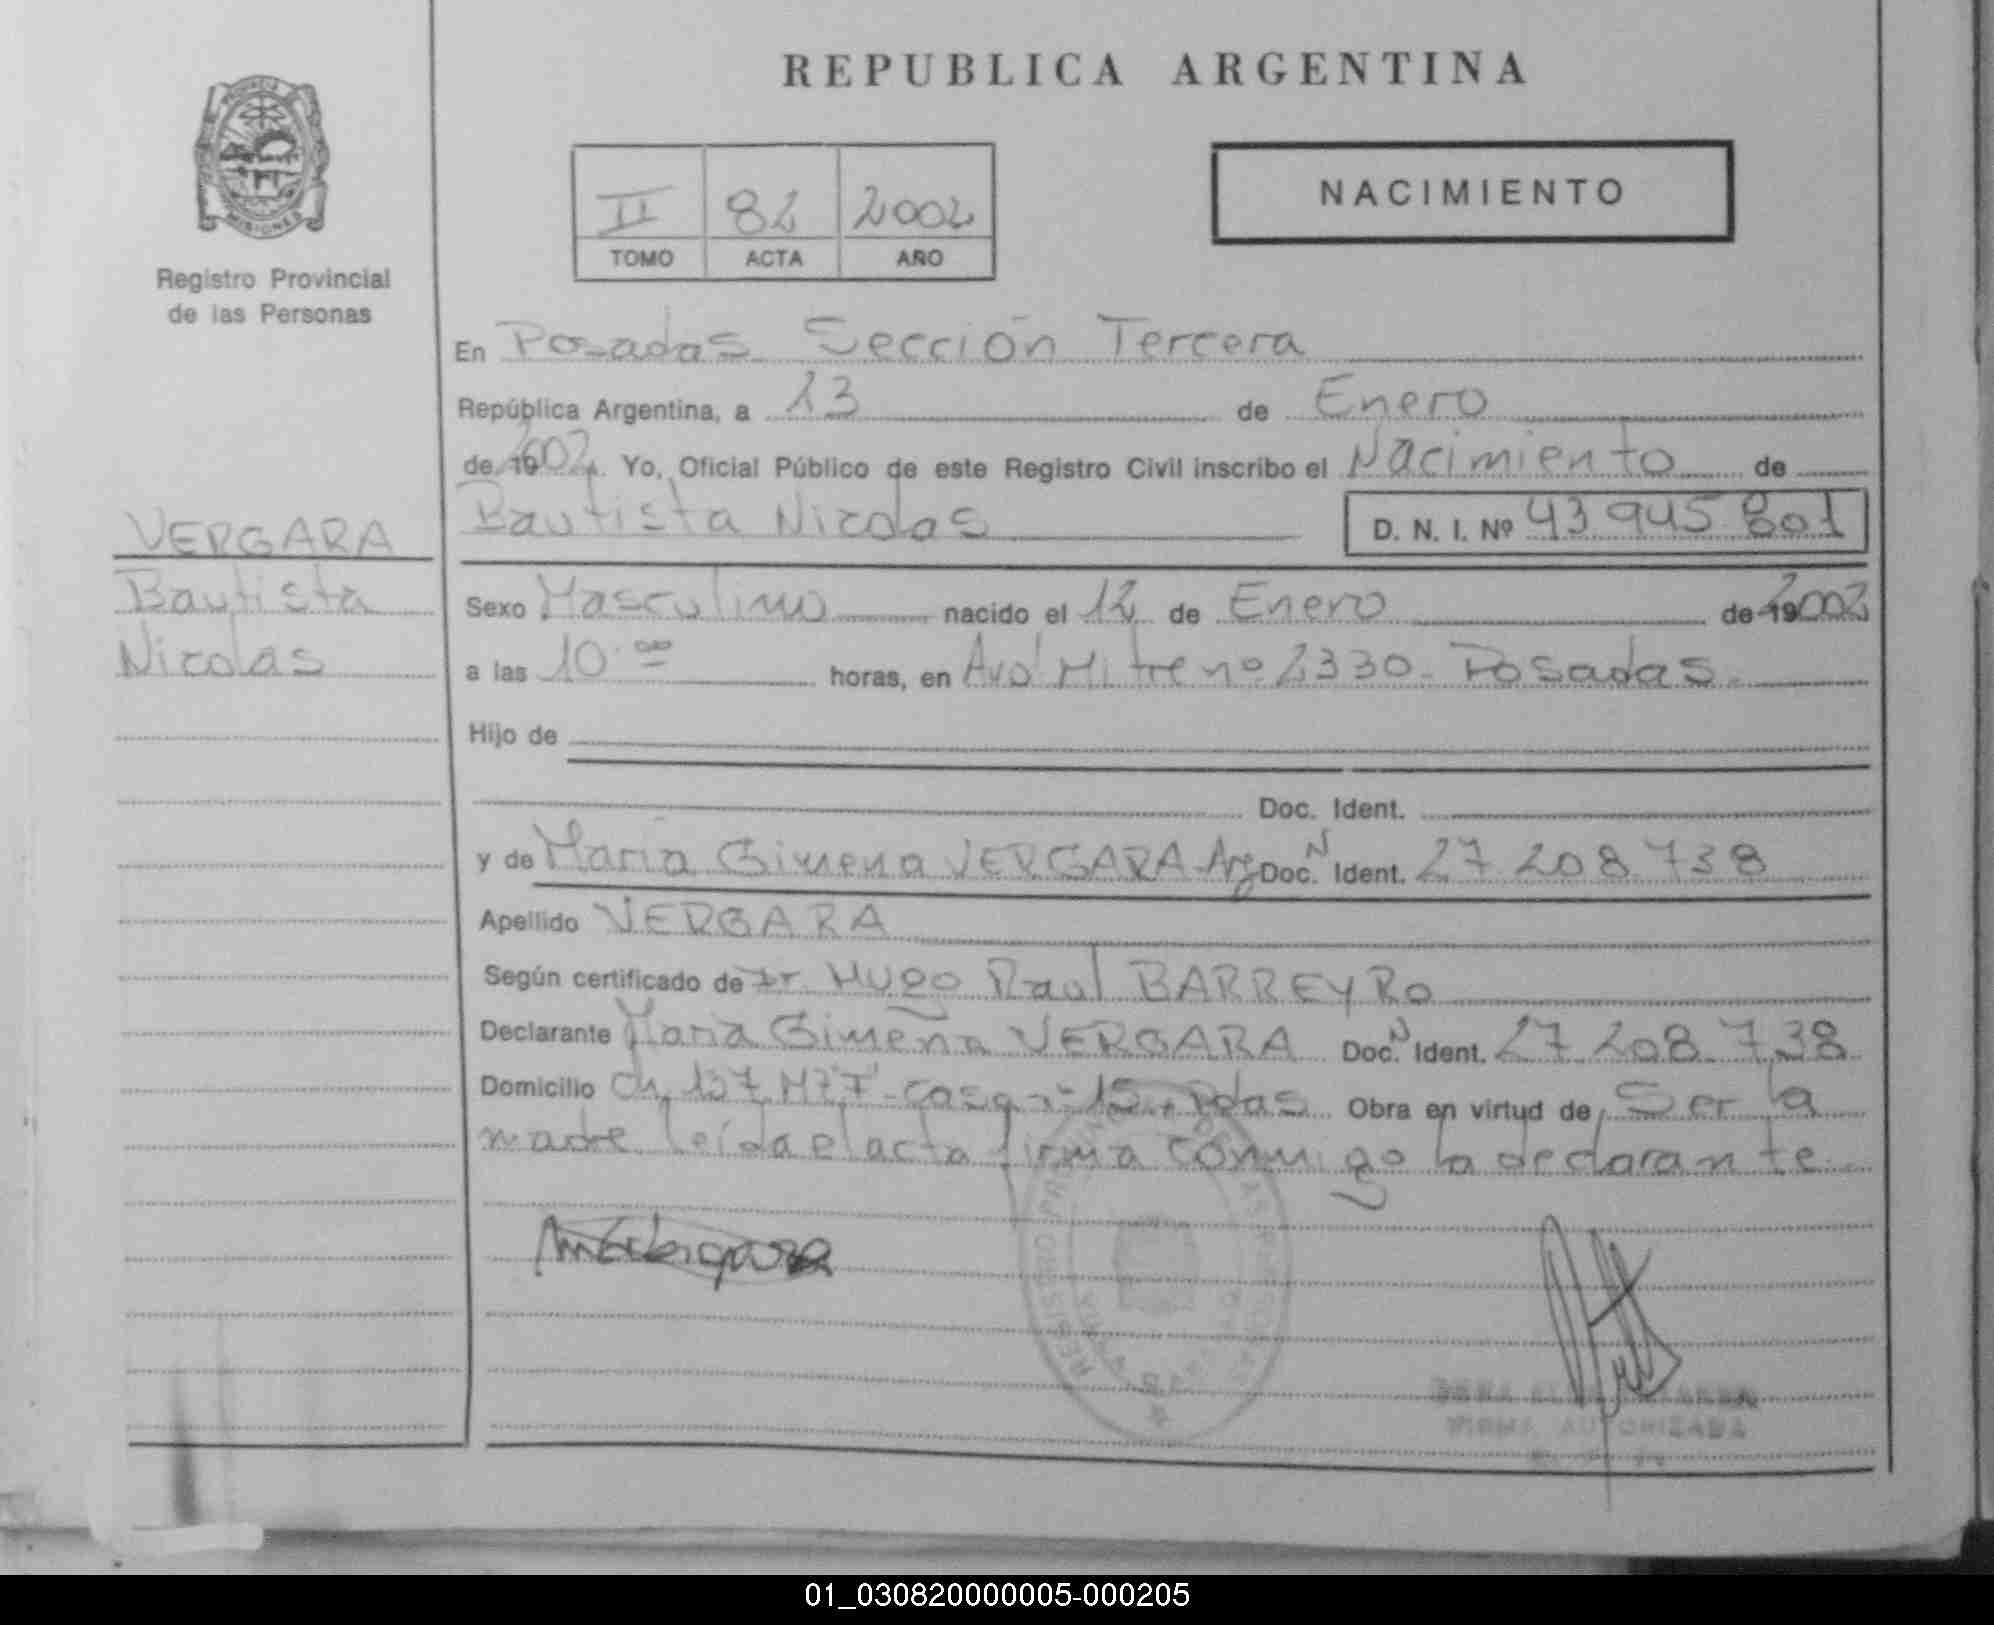 REPUBLICA ARGENTINA
PROVINCIA DE
MISIONES
Registro Provincial
de las Personas
II 82 2002
TOMO ACTA AÑO
NACIMIENTO
En Posadas Sección Tercera
República Argentina, a 23 de Enero
de 2002. Yo, Oficial Público de este Registro Civil inscribo el Nacimiento de
Bautista Nicolas D. N. I. Nº 43 945 801
VERGARA
Bautista
Nicolas
Sexo Masculino nacido el 12 de Enero de 19 2002
a las 10.00 horas, en Avd Mitre nº 2330 - Posadas.
Hijo de
Doc. Ident.
y de Maria Gimena VERGARA - Arg Doc. N Ident. 27 208 738
Apellido VERGARA
Según certificado de Dr. Hugo Raul BARREYRO
Declarante Maria Gimena VERGARA Doc. N Ident. 27 208 738
Domicilio Ch. 137 M7 - casa 15 - Pdas Obra en virtud de Ser la
madre leída el acta firma conmigo la declarante
REGISTRO PROVINCIAL DE LAS PERSONAS
FIRMA AUTORIZADA
01_030820000005-000205